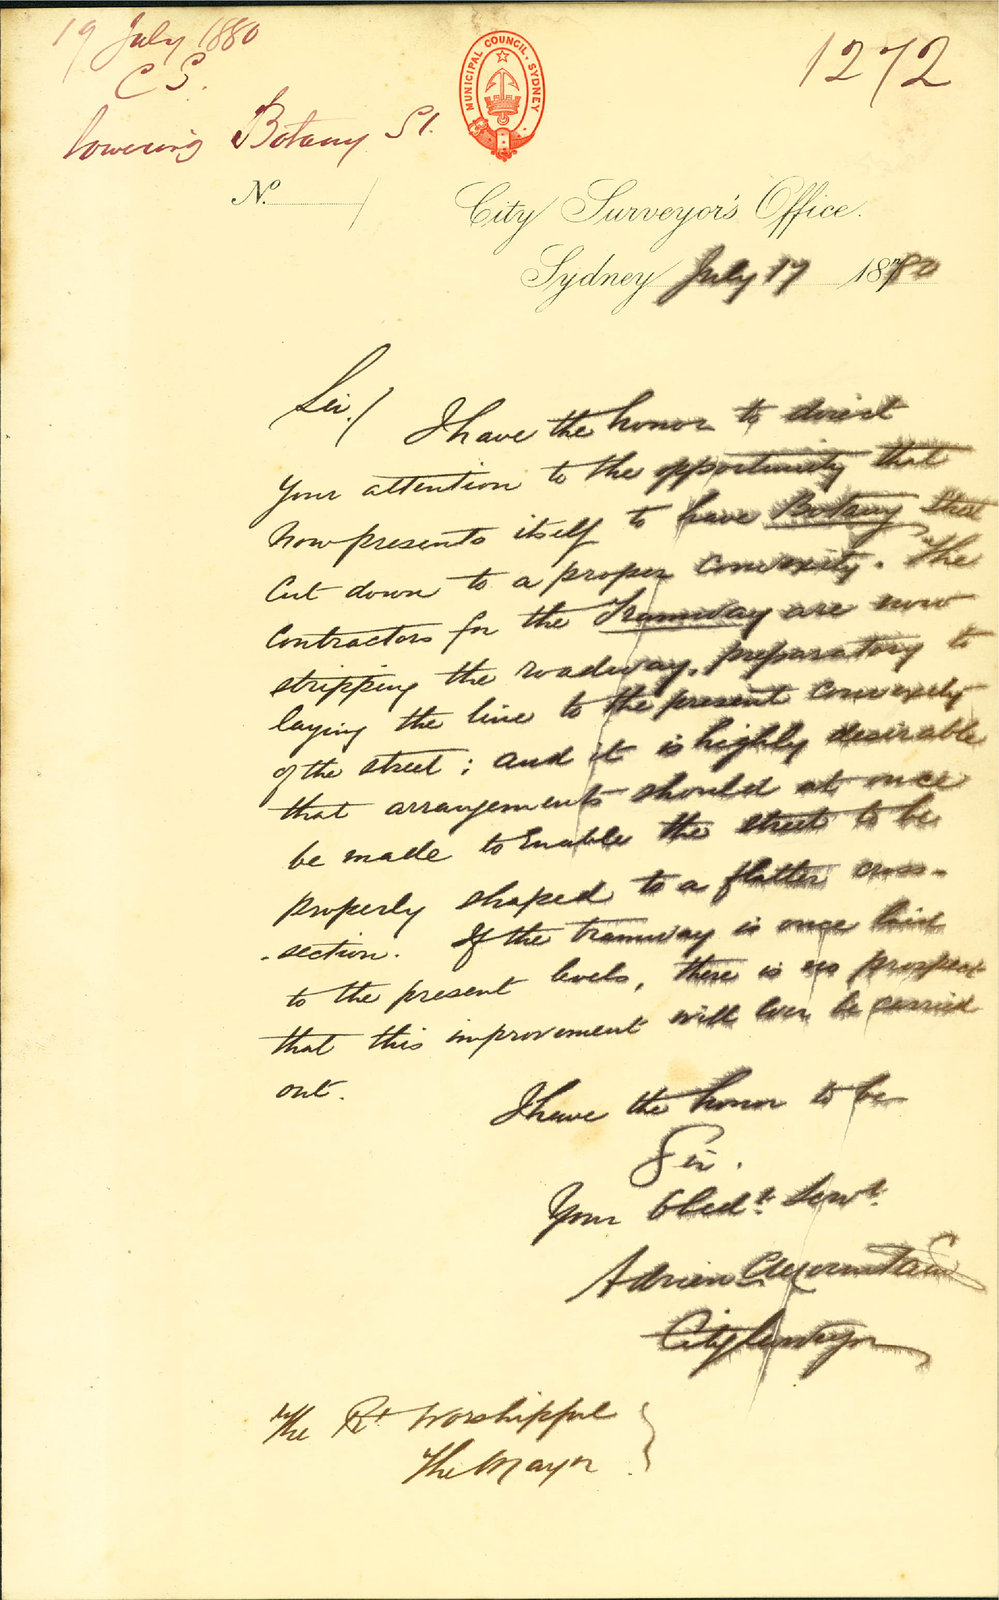 19 July 1880
C S.
lowering Botany St.
1272
MUNICIPAL COUNCIL, SYDNEY
No.
City Surveyor's Office.
Sydney July 19 1880
Sir/ I have the honor to direct
your attention to the opportunity that
now presents itself to have Botany Street
cut down to a proper convexity. The
Contractors for the Tramway are now
stripping the roadway, preparatory to
laying the line to the present convexity
of the street; and it is highly desirable
that arrangements should at once
be made to Enable the street to be
properly shaped to a flatter cross-
-section. If the tramway is once laid
to the present levels, there is no prospect
that this improvement will ever be carried
out.
I have the honor to be
Sir.
Your Obedt. Servt.
Adrien C Mountain
City Surveyor
The Rt Worshipful
The Mayor